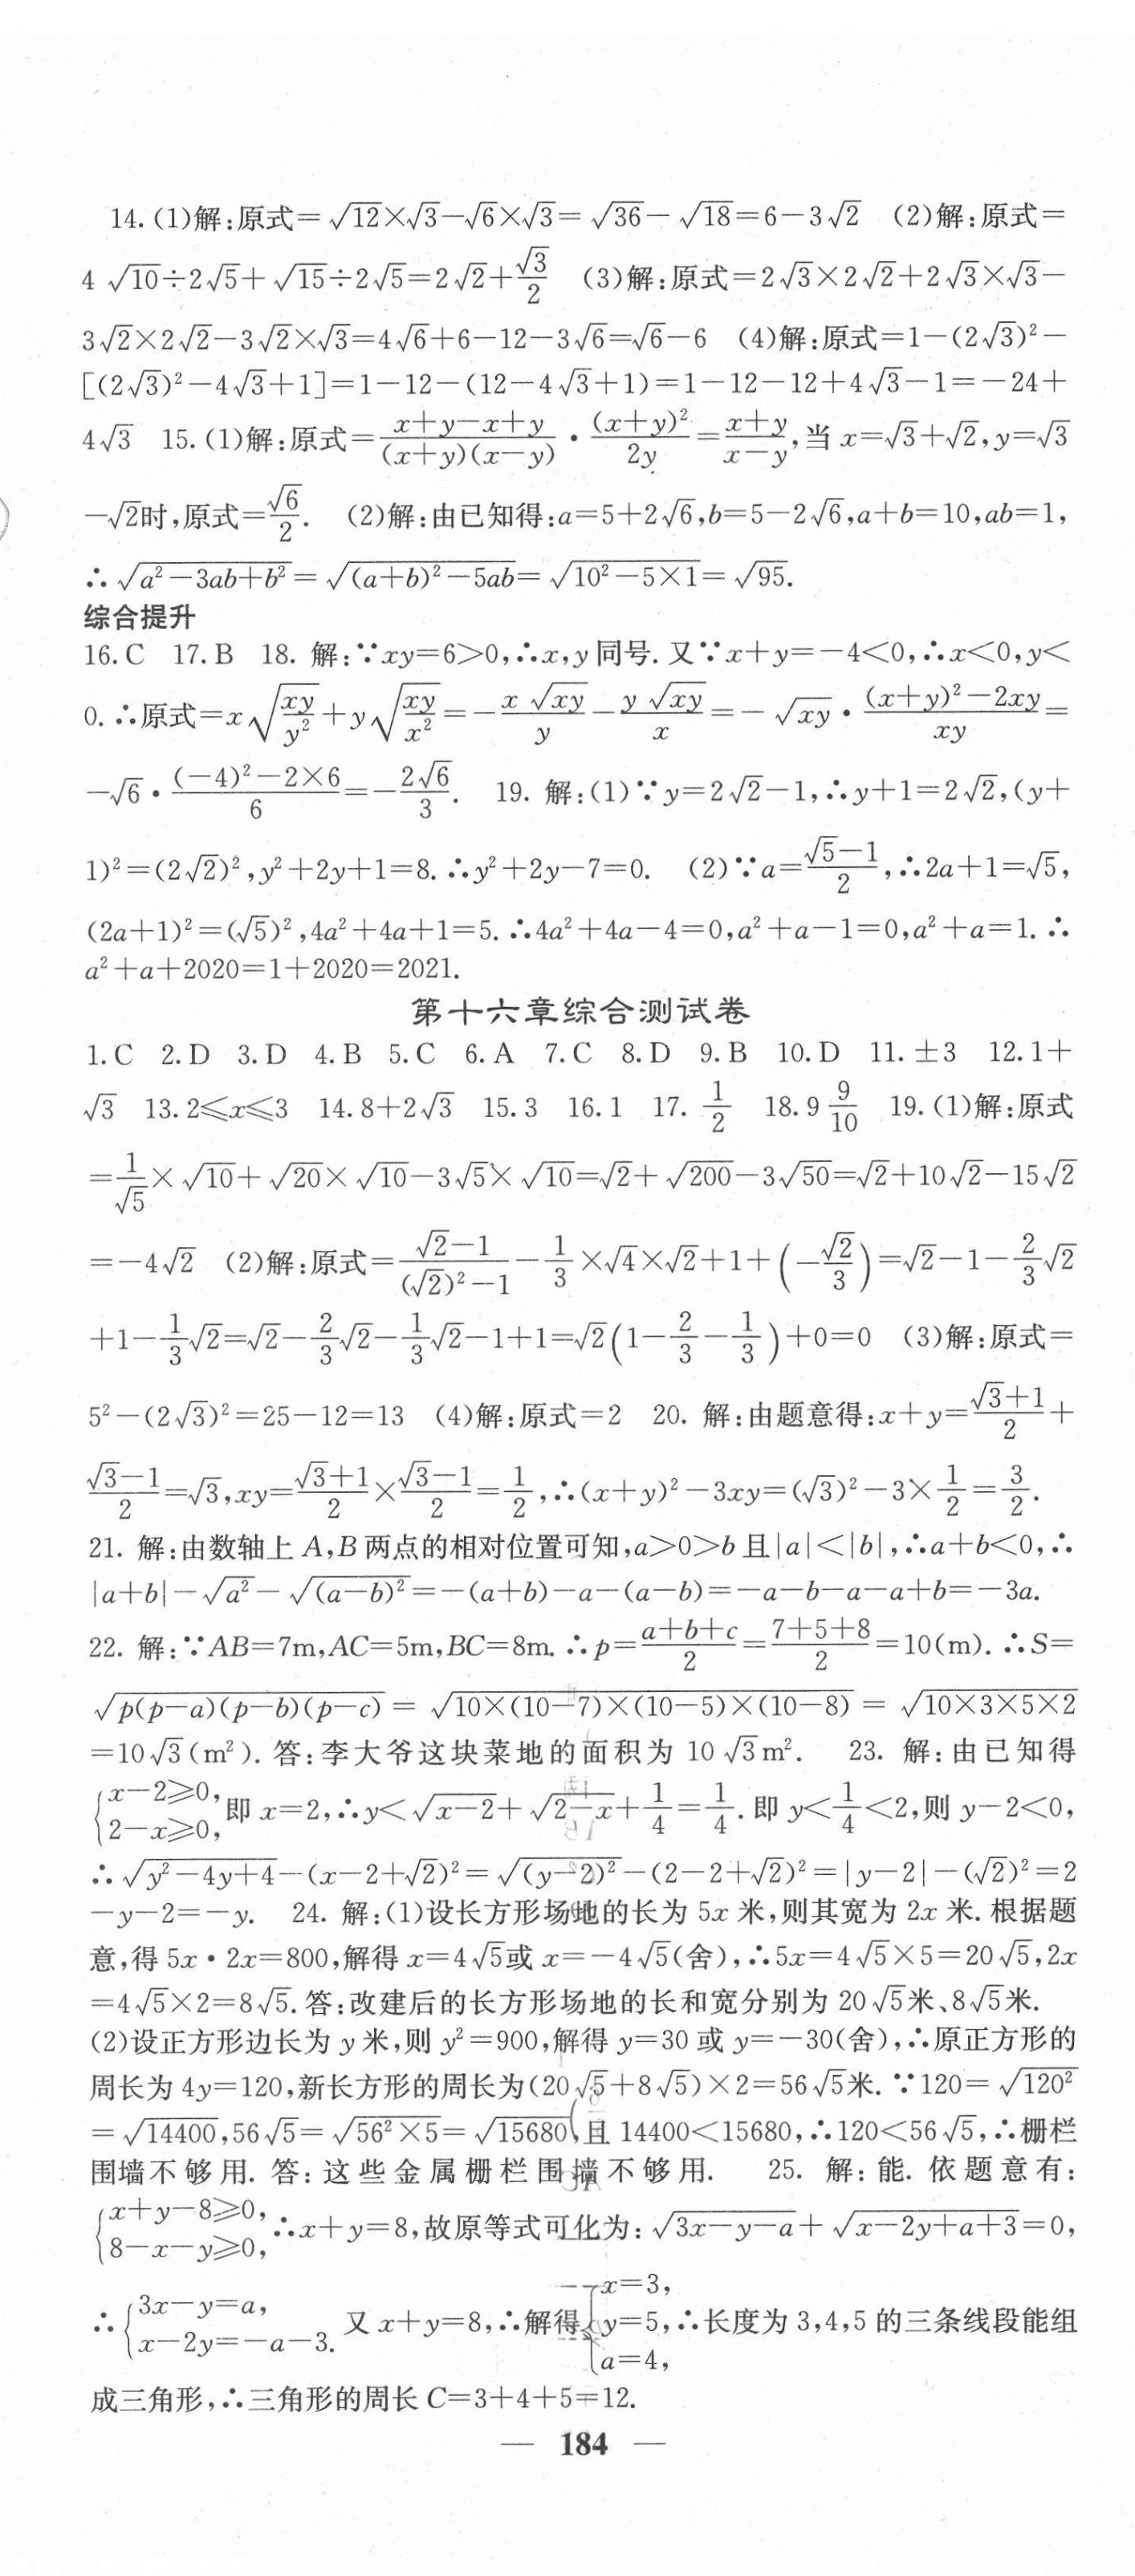 14.(1)解:原式=√12×√3-√6×√3=√36-√18=6-3√2 (2)解:原式=
4√10÷2√5+√15÷2√5=2√2+√3/2 (3)解:原式=2√3×2√2+2√3×√3-
3√2×2√2-3√2×√3=4√6+6-12-3√6=√6-6 (4)解:原式=1-(2√3)²-
[(2√3)²-4√3+1]=1-12-(12-4√3+1)=1-12-12+4√3-1=-24+
4√3 15.(1)解:原式=(x+y-x+y)/((x+y)(x-y))·(x+y)²/2y=(x+y)/(x-y),当x=√3+√2,y=√3
-√2时,原式=√6/2. (2)解:由已知得:a=5+2√6,b=5-2√6,a+b=10,ab=1,
∴√(a²-3ab+b²)=√((a+b)²-5ab)=√(10²-5×1)=√95.
综合提升
16.C 17.B 18. 解:∵xy=6>0,∴x,y同号.又∵x+y=-4<0,∴x<0,y<
0.∴原式=x√(xy/y²)+y√(xy/x²)=-x√(xy)/y-y√(xy)/x=-√(xy)·((x+y)²-2xy)/xy=
-√6·((-4)²-2×6)/6=-2√6/3. 19. 解:(1)∵y=2√2-1,∴y+1=2√2,(y+
1)²=(2√2)²,y²+2y+1=8.∴y²+2y-7=0. (2)∵a=(√5-1)/2,∴2a+1=√5,
(2a+1)²=(√5)²,4a²+4a+1=5.∴4a²+4a-4=0,a²+a-1=0,a²+a=1.∴
a²+a+2020=1+2020=2021.
第十六章综合测试卷
1.C 2.D 3.D 4.B 5.C 6.A 7.C 8.D 9.B 10.D 11.±3 12.1+
√3 13.2≤x≤3 14.8+2√3 15.3 16.1 17.1/2 18.9 9/10 19.(1)解:原式
=1/√5×√10+√20×√10-3√5×√10=√2+√200-3√50=√2+10√2-15√2
=-4√2 (2)解:原式=(√2-1)/((√2)²-1)-1/3×√4×√2+1+(-√2/3)=√2-1-2/3√2
+1-1/3√2=√2-2/3√2-1/3√2-1+1=√2(1-2/3-1/3)+0=0 (3)解:原式=
5²-(2√3)²=25-12=13 (4)解:原式=2 20. 解:由题意得:x+y=(√3+1)/2+
(√3-1)/2=√3,xy=(√3+1)/2×(√3-1)/2=1/2,∴(x+y)²-3xy=(√3)²-3×1/2=3/2.
21. 解:由数轴上A,B两点的相对位置可知,a>0>b且|a|<|b|,∴a+b<0,∴
|a+b|-√a²-√((a-b)²)=-(a+b)-a-(a-b)=-a-b-a-a+b=-3a.
22. 解:∵AB=7m,AC=5m,BC=8m.∴p=(a+b+c)/2=(7+5+8)/2=10(m).∴S=
√(p(p-a)(p-b)(p-c))=√(10×(10-7)×(10-5)×(10-8))=√(10×3×5×2)
=10√3(m²).答:李大爷这块菜地的面积为10√3m². 23. 解:由已知得
{x-2≥0,2-x≥0,即x=2,∴y<√(x-2)+√(2-x)+1/4=1/4.即y<1/4<2,则y-2<0,
∴√(y²-4y+4)-(x-2+√2)²=√((y-2)²)-(2-2+√2)²=|y-2|-(√2)²=2
-y-2=-y. 24. 解:(1)设长方形场地的长为5x米,则其宽为2x米.根据题
意,得5x·2x=800,解得x=4√5或x=-4√5(舍),∴5x=4√5×5=20√5,2x
=4√5×2=8√5.答:改建后的长方形场地的长和宽分别为20√5米、8√5米.
(2)设正方形边长为y米,则y²=900,解得y=30或y=-30(舍),∴原正方形的
周长为4y=120,新长方形的周长为(20√5+8√5)×2=56√5米.∵120=√120²
=√14400,56√5=√(56²×5)=√15680,且14400<15680,∴120<56√5,∴栅栏
围墙不够用.答:这些金属栅栏围墙不够用. 25. 解:能.依题意有:
{x+y-8≥0,8-x-y≥0,∴x+y=8,故原等式可化为:√(3x-y-a)+√(x-2y+a+3)=0,
∴{3x-y=a,x-2y=-a-3.又x+y=8,∴解得{x=3,y=5,a=4,∴长度为3,4,5的三条线段能组
成三角形,∴三角形的周长C=3+4+5=12.
— 184 —